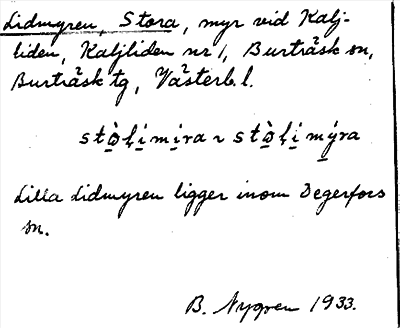 Lidmyren, Stora, myr vid Kalj-
liden, Kaljliden nr 1, Burträsk sn,
Burträsk tg, Västerb. l.
stò̱ḷi̱mi̱ra ~ stò̱ḷi̱mýra
Lilla Lidmyren ligger inom Degerfors
sn.
B. Nygren 1933.